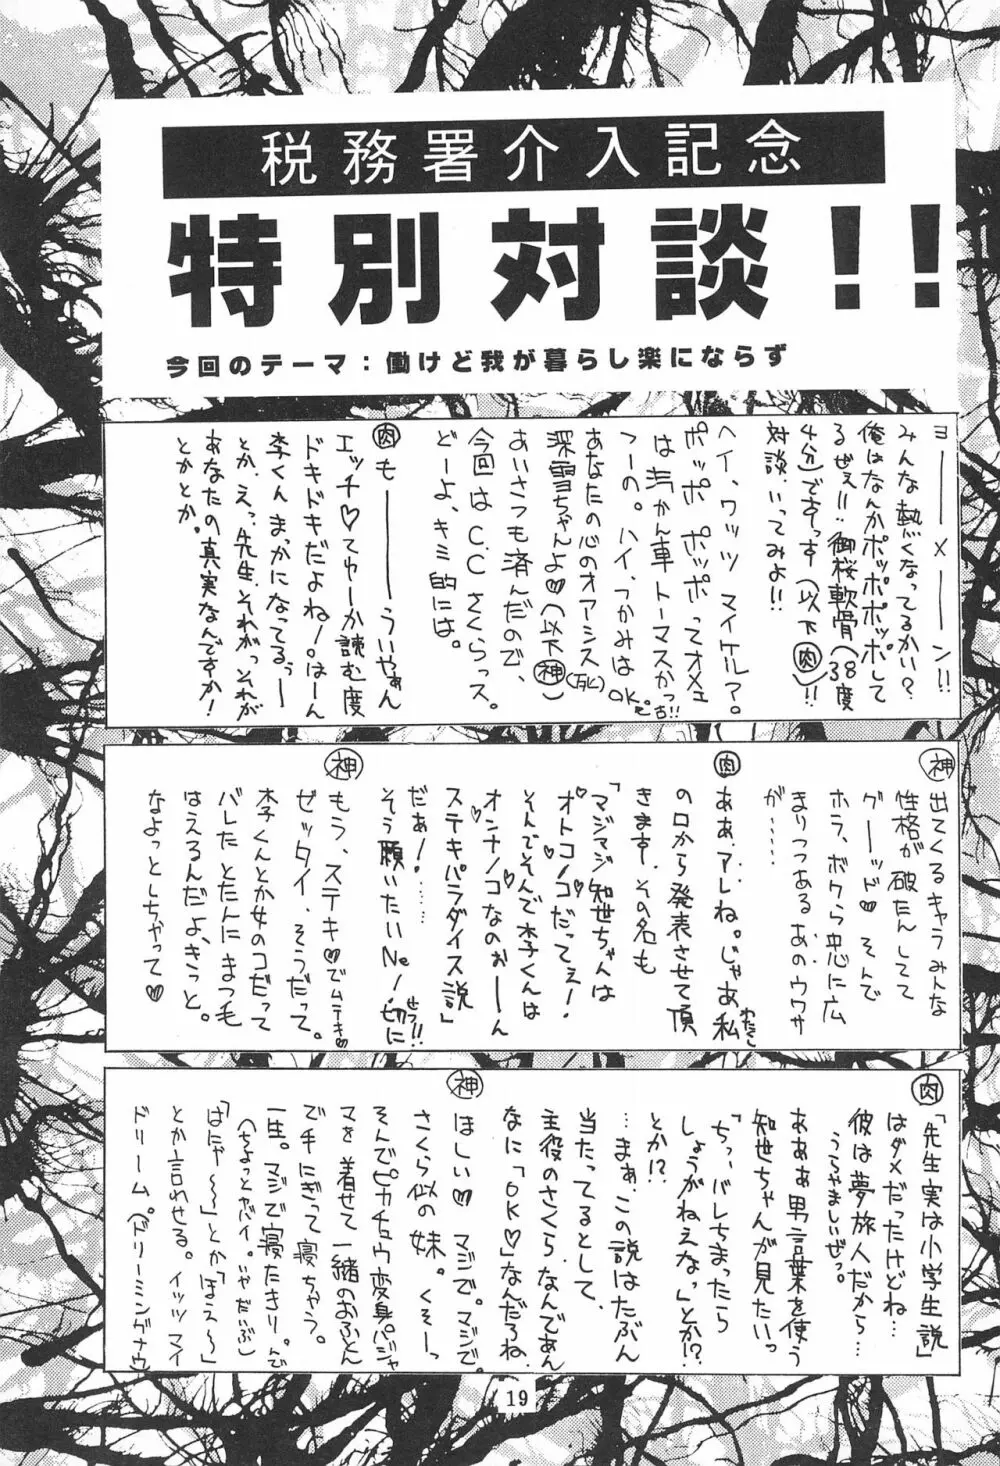 税務署介入記念
特別対談!!
今回のテーマ：働けど我が暮らし楽にならず
ヨーーメーーン!!
みんな熱くなってるかい?
俺はなんかポッポポッポして
るぜぇ!!…御桜軟骨(38度
4分)ですっす(以下㊥肉)!!
対談…いってみよ!!
ヘイ、ワッツ マイケル?。
ポッポ ポッポってオメェ
は汽かん車トーマスかっ!!
つーの。ハイ、つかみはOK。
あなたの心のオアシス
深雪ちゃんよ♡(以下神)
あいさつも済んだので、
今回はC.C.さくらっス。
どーよ、キミ的には。
肉 も————ういやぁん
エッチ♡てゆーか読む度
ドキドキだよね!はーん
李くんまっかになってるぅー
とか、えっ、先生、それがっそれが
あなたの真実なんですか!
とかとか。
神 出てくるキャラみんな
性格が破たんしてて
グーッド♡そんで
ホラ、ボクら忠に広
まりつつあるあのウワサ
が……
肉 ああ、アレね。じゃあ私
わたくし
の口から発表させて頂
きます、その名も
「マジマジ知世ちゃんは
オトコノコだってぇ!
そんでそんで李くんは
オンナノコなのぉーーん
ステキパラダイス説」
だぁ!……
そう願いたいNe!切に
せつ!!
神 もう、ステキ♡でムテキ♡
ゼッタイ、そうだって。
李くんとか女のコだって
バレたとたんにまつ毛
はえるんだよ、きっと。
なよっとしちゃって♡
肉 「先生実は小学生説」
はダメだったけどね…
彼は夢旅人だから…
うらやましいぜっ。
あああ男言葉を使う
知世ちゃんが見たいっ
「ちっ、バレちまったら
しょうがねえなっ」とか!?
とか!?
…まぁ、この説はたぶん
当たってるとして、
主役のさくらなんであん
なに「OK♡」なんだろね、
神 ほしい♡ マジで。マジで。
さくら似の妹。くそーっ
そんでピカチュウ変身パジャ
マを着せて一緒のおふとん
で手にぎって寝ちゃう。
一生。マジで寝たきり。んで
(ちょっとヤバイ。いやだいぶ)
「はにゃ〜〜」とか「ほえ〜〜」
とか言わせる。イッツマイ
ドリーム。(ドリーミングナウ)
19